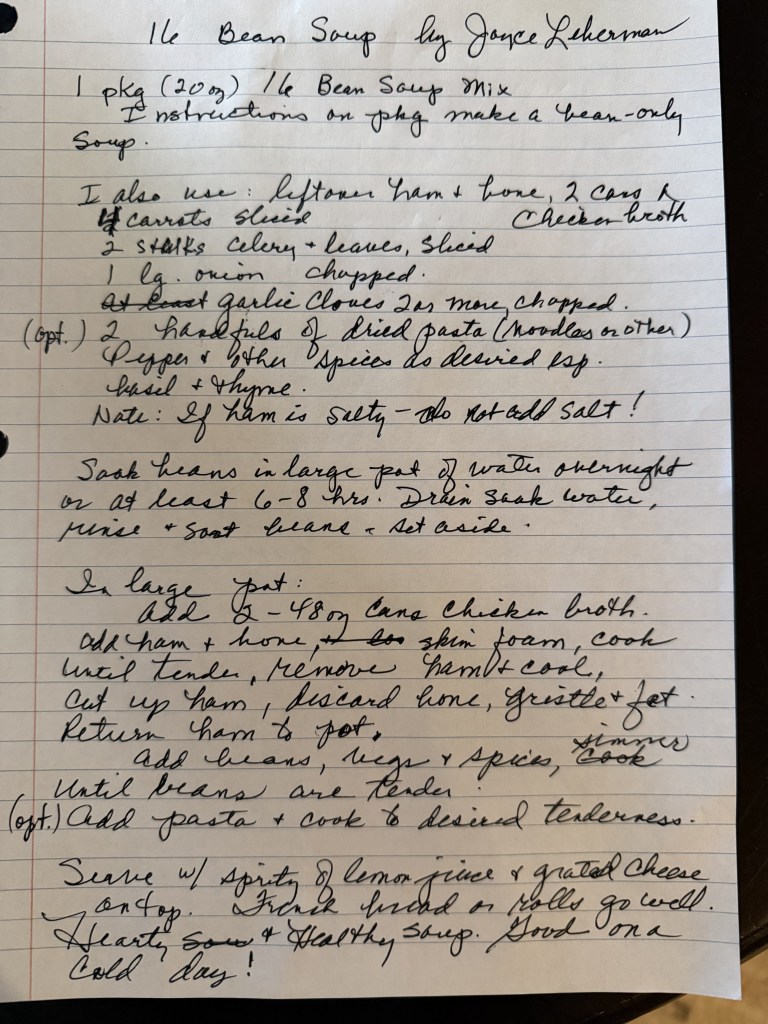 16 Bean Soup by Joyce Leherman
1 pkg (20 oz) 16 Bean Soup Mix
Instructions on pkg make a bean-only
Soup.
I also use: leftover ham + bone, 2 cans
chicken broth
4 carrots sliced
2 stalks celery + leaves, sliced
1 lg. onion chopped.
at least garlic cloves 2 or more, chopped.
(opt.) 2 handfuls of dried pasta (noodles or other)
Pepper + other spices as desired esp.
basil + thyme.
Note: If ham is salty - do not add salt!
Soak beans in large pot of water overnight
or at least 6-8 hrs. Drain soak water,
rinse + sort beans - set aside.
In large pot:
add 2 - 48 oz cans chicken broth.
add ham + bone, skim foam, cook
until tender, remove ham + cool,
cut up ham, discard bone, gristle + fat.
Return ham to pot.
add beans, vegs + spices, simmer cook
until beans are tender.
(opt.) Add pasta + cook to desired tenderness.
Serve w/ spritz of lemon juice + grated cheese
on top. French bread or rolls go well.
Hearty sou + Healthy soup. Good on a
cold day!